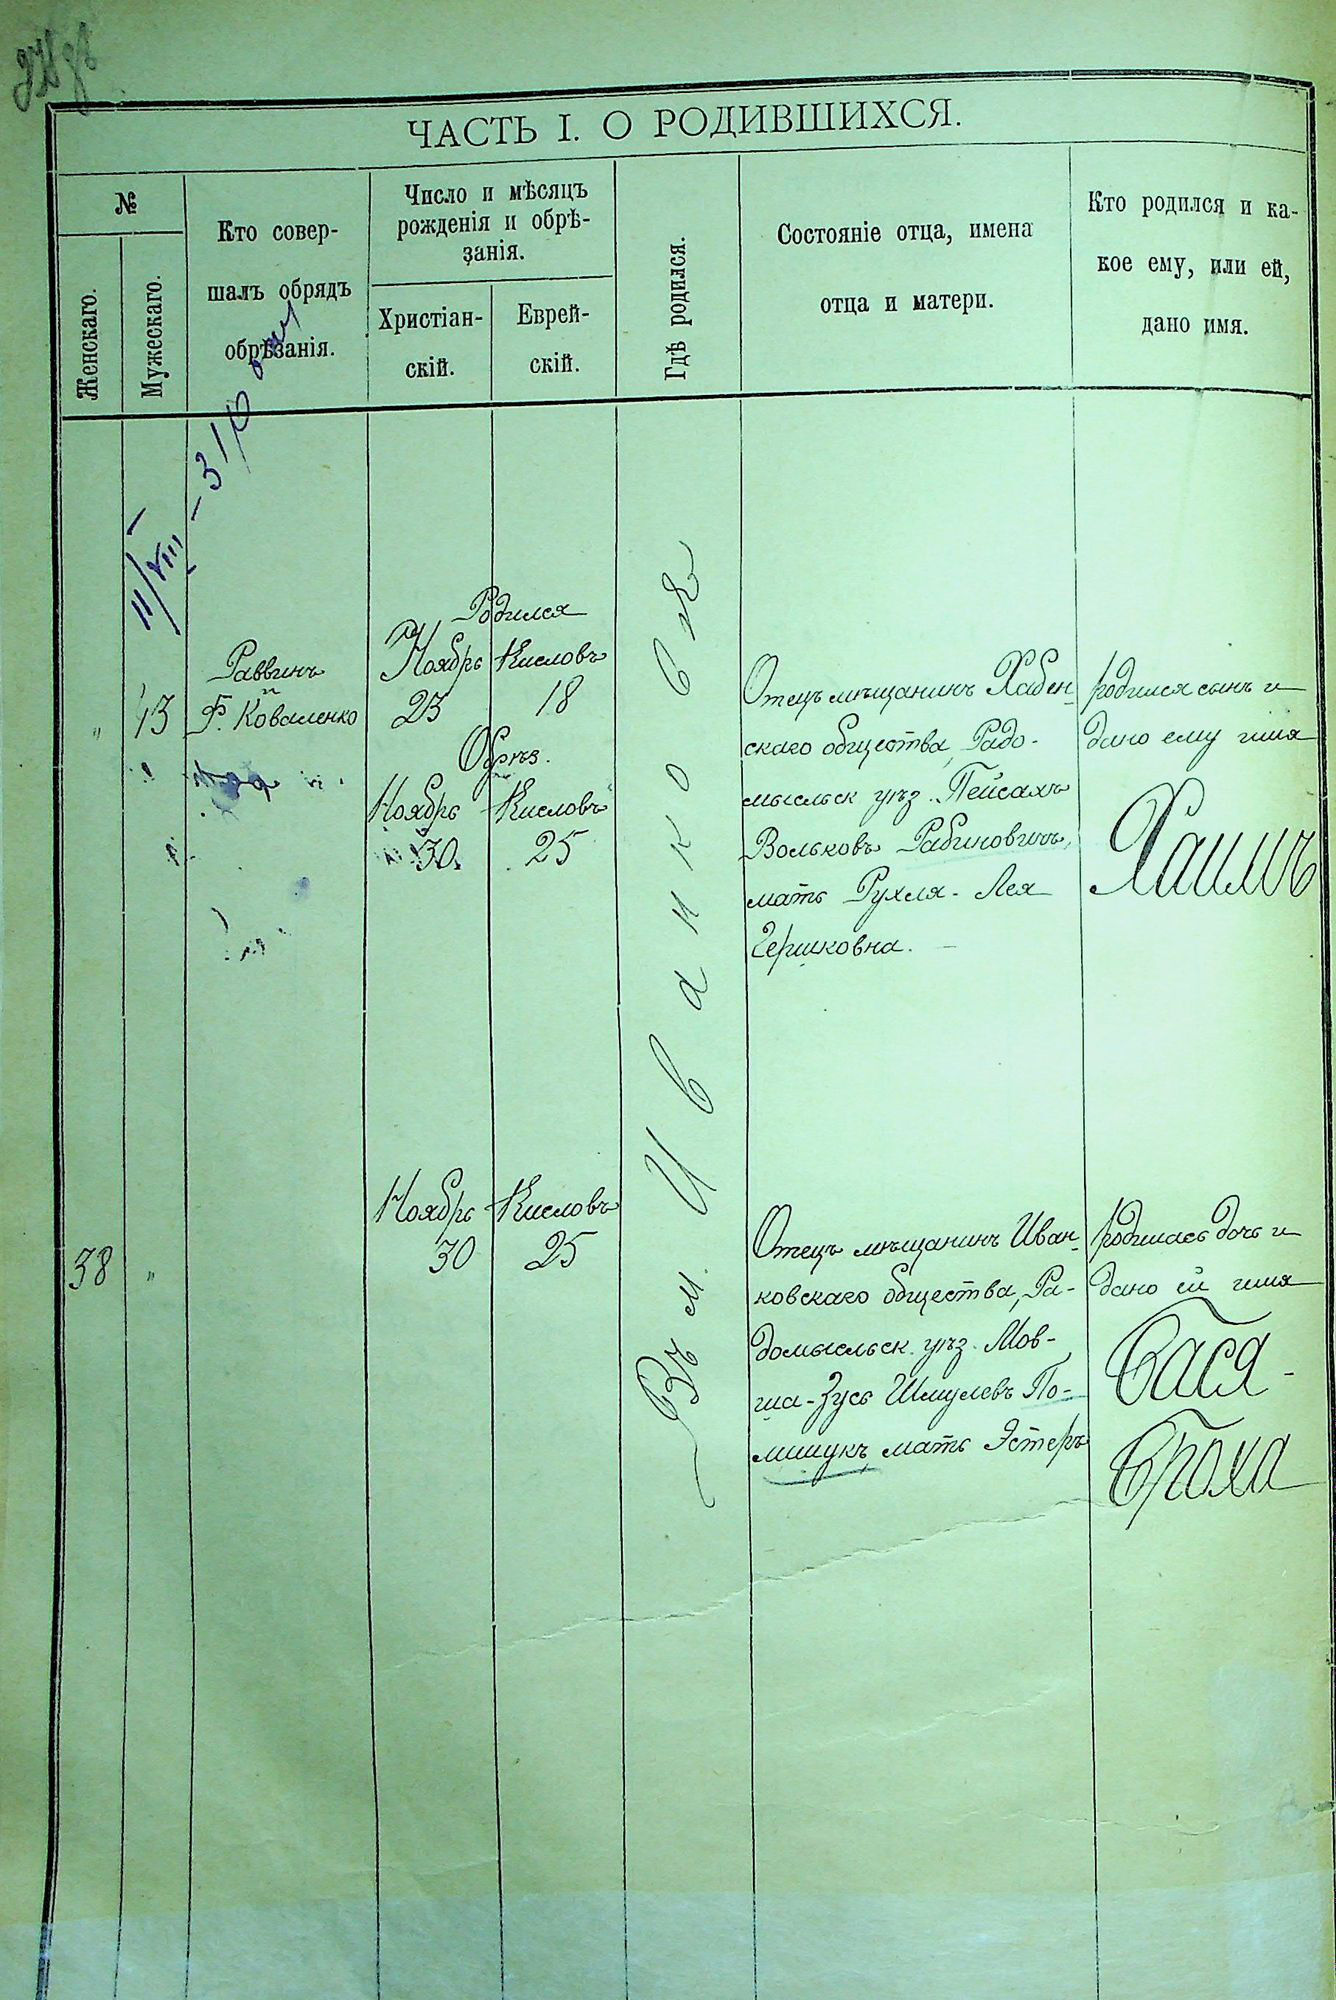 ЧАСТЬ I. О РОДИВШИХСЯ.
№
Женскаго.
Мужескаго.
Кто совер-
шалъ обрядъ
обрѣзанія.
Число и мѣсяцъ
рожденія и обрѣ-
занія.
Христіан-
скій.
Еврей-
скій.
Гдѣ родился.
Состояніе отца, имена
отца и матери.
Кто родился и ка-
кое ему, или ей,
дано имя.
11/VIII –
"
43
Раввинъ
Ф. Коваленко
Родился
Ноябрь Кисловъ
23 18
Обрѣз.
Ноябрь Кисловъ
30. 25
Въ м. Иванковѣ
Отецъ мѣщанинъ Хабен-
скаго общества, Радо-
мысльск уѣз. Пейсахъ
Вольковъ Рабиновичъ,
мать Рухля-Лея
Гершковна.
родился сынъ и
дано ему имя
Хаимъ
38
"
Ноябрь Кисловъ
30 25
Отецъ мѣщанинъ Иван-
ковскаго общества, Ра-
домысльск. уѣз. Мов-
ша-Зусь Шмулевъ По-
лищукъ мать Эстеръ
родилась дочь и
дано ей имя
Бася-
Броха